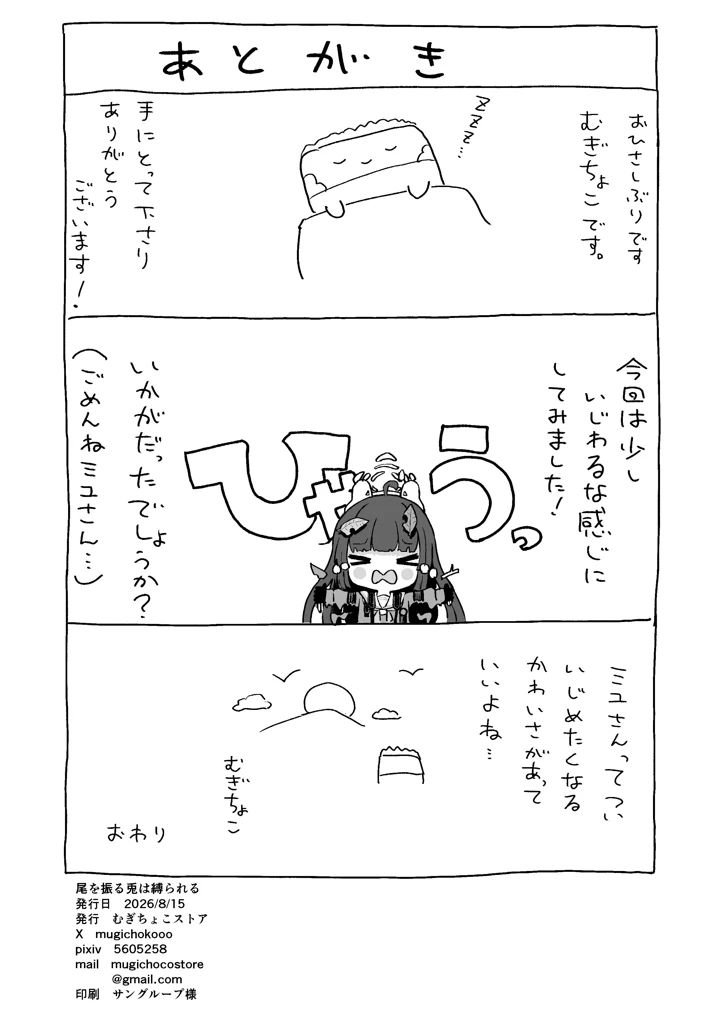 あとがき
おひさしぶりです
むぎちょこです。
zzz...
手にとって下さり
ありがとう
ございます!
今回は少し
いじわるな感じに
してみました!
びゃうっ
いかがだったでしょうか?
(ごめんねミユさん…)
ミユさんってつい
いじめたくなる
かわいさがあって
いいよね…
むぎちょこ
おわり
尾を振る兎は縛られる
発行日 2026/8/15
発行 むぎちょこストア
X mugichokooo
pixiv 5605258
mail mugichocostore
@gmail.com
印刷 サングループ様